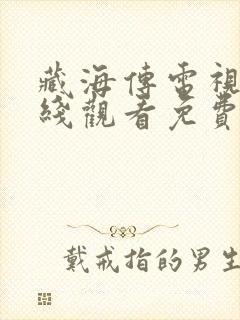 藏海傳電視
綫觀看免費
戴戒指的男生